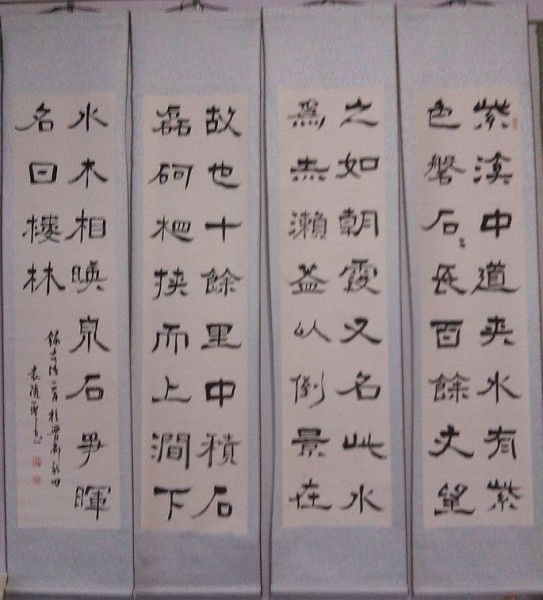 紫溪中道夾水有紫
色磐石〻長百餘丈望
之如朝霞又名此水
為赤瀨盖以倒景在
故也十餘里中積石
磊砢相挟而上澗下
水木相暎泉石爭暉
名曰樓林